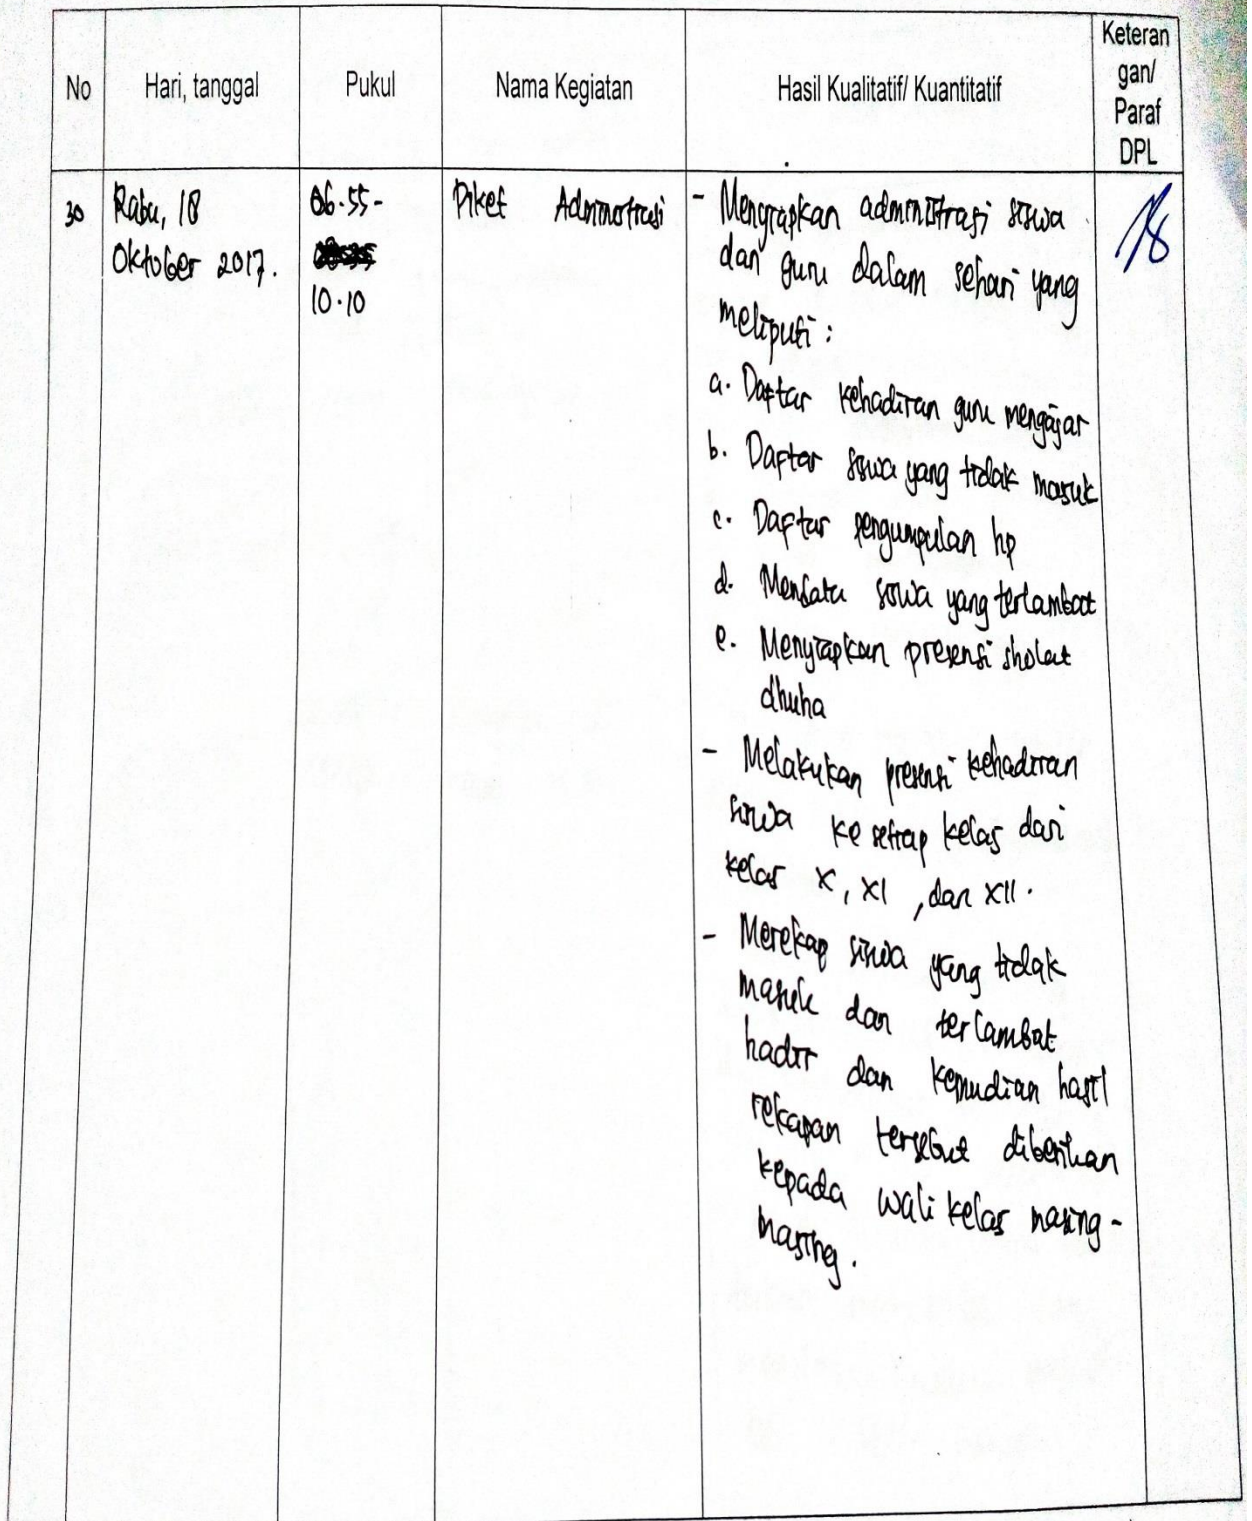 No
Hari, tanggal
Pukul
Nama Kegiatan
Hasil Kualitatif/ Kuantitatif
Keteran
gan/
Paraf
DPL
30
Rabu, 18
Oktober 2017.
06.55-
10.10
Piket Administrasi
- Menyiapkan administrasi siswa
dan guru dalam sehari yang
meliputi :
a. Daftar kehadiran guru mengajar
b. Daftar siswa yang tidak masuk
c. Daftar pengumpulan hp
d. Mendata siswa yang terlambat
e. Menyiapkan presensi sholat
dhuha
- Melakukan presensi kehadiran
siswa ke setiap kelas dari
kelas X, XI, dan XII.
- Merekap siswa yang tidak
masuk dan terlambat
hadir dan kemudian hasil
rekapan tersebut diberikan
kepada wali kelas masing-
masing.